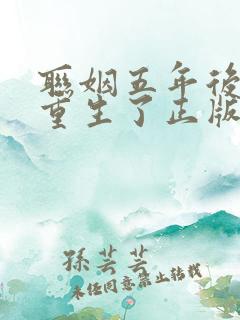 聯姻五年後
重生了正版
孫芸芸
未經同意禁止轉載